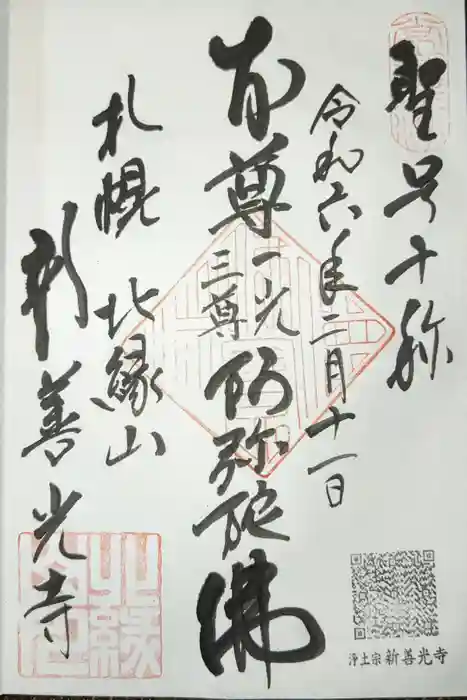 聖号十称
令和六年二月十一日
本尊一光三尊阿弥陀佛
札幌 北縁山
新善光寺
浄土宗 新善光寺